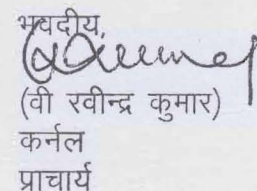 भवदीय,
(वी रवीन्द्र कुमार)
कर्नल
प्राचार्य